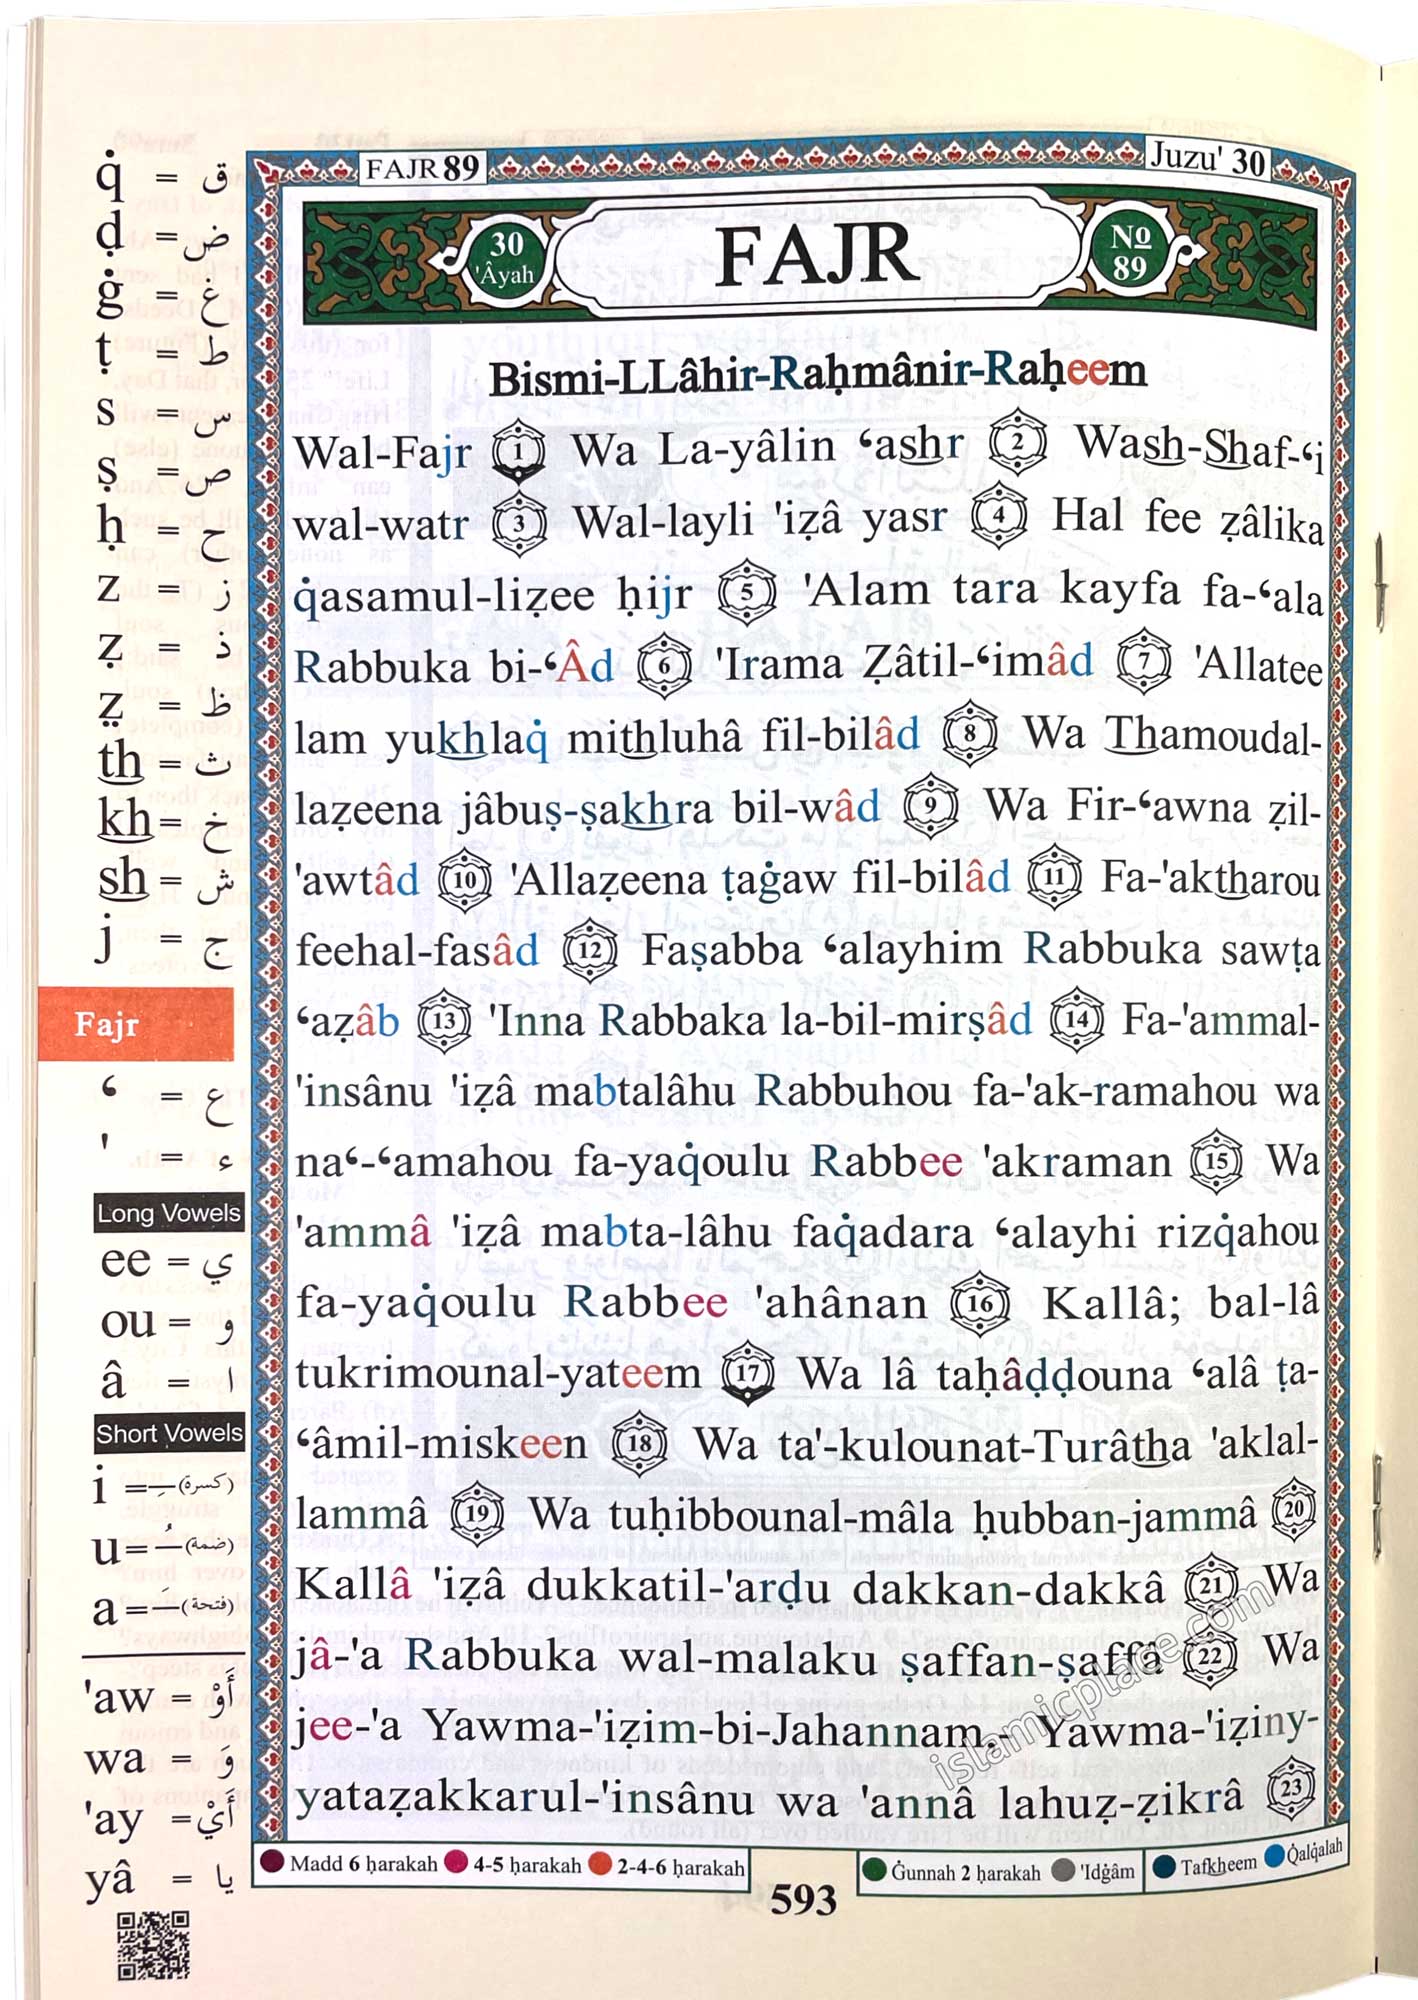 FAJR 89
Juzu' 30
30
'Âyah
FAJR
Nº
89
Bismi-LLâhir-Raḥmânir-Raḥeem
Wal-Fajr 1 Wa La-yâlin ‘ashr 2 Wash-Shaf-‘i
wal-watr 3 Wal-layli 'iẓâ yasr 4 Hal fee ẓâlika
q̇asamul-liẓee ḥijr 5 'Alam tara kayfa fa-‘ala
Rabbuka bi-‘Âd 6 'Irama Ẓâtil-‘imâd 7 'Allatee
lam yukhlaq̇ mithluhâ fil-bilâd 8 Wa Thamoudal-
laẓeena jâbuṣ-ṣakhra bil-wâd 9 Wa Fir-‘awna ẓil-
'awtâd 10 'Allaẓeena ṭaġaw fil-bilâd 11 Fa-'aktharou
feehal-fasâd 12 Faṣabba ‘alayhim Rabbuka sawṭa
‘aẓâb 13 'Inna Rabbaka la-bil-mirṣâd 14 Fa-'ammal-
'insânu 'iẓâ mabtalâhu Rabbuhou fa-'ak-ramahou wa
na‘-‘amahou fa-yaq̇oulu Rabbee 'akraman 15 Wa
'ammâ 'iẓâ mabta-lâhu faq̇adara ‘alayhi rizq̇ahou
fa-yaq̇oulu Rabbee 'ahânan 16 Kallâ; bal-lâ
tukrimounal-yateem 17 Wa lâ taḥâḍḍouna ‘alâ ṭa-
‘âmil-miskeen 18 Wa ta'-kulounat-Turâtha 'aklal-
lammâ 19 Wa tuḥibbounal-mâla ḥubban-jammâ 20
Kallâ 'iẓâ dukkatil-'arḍu dakkan-dakkâ 21 Wa
jâ-'a Rabbuka wal-malaku ṣaffan-ṣaffâ 22 Wa
jee-'a Yawma-'iẓim-bi-Jahannam,- Yawma-'iẓiny-
yataẓakkarul-'insânu wa 'annâ lahuẓ-ẓikrâ 23
islamicplace.com
Madd 6 ḥarakah 4-5 ḥarakah 2-4-6 ḥarakah
Ġunnah 2 ḥarakah 'Idġâm Tafkheem Q̇alq̇alah
593
q̇ = ق
ḍ = ض
ġ = غ
ṭ = ط
s = س
ṣ = ص
ḥ = ح
z = ز
ẓ = ذ
z̤ = ظ
th = ث
kh = خ
sh = ش
j = ج
Fajr
‘ = ع
' = ء
Long Vowels
ee = ي
ou = و
â = ا
Short Vowels
i = ـِ (كسرة)
u = ـُ (ضمة)
a = ـَ (فتحة)
'aw = أَوْ
wa = و
'ay = أَيْ
yâ = يا